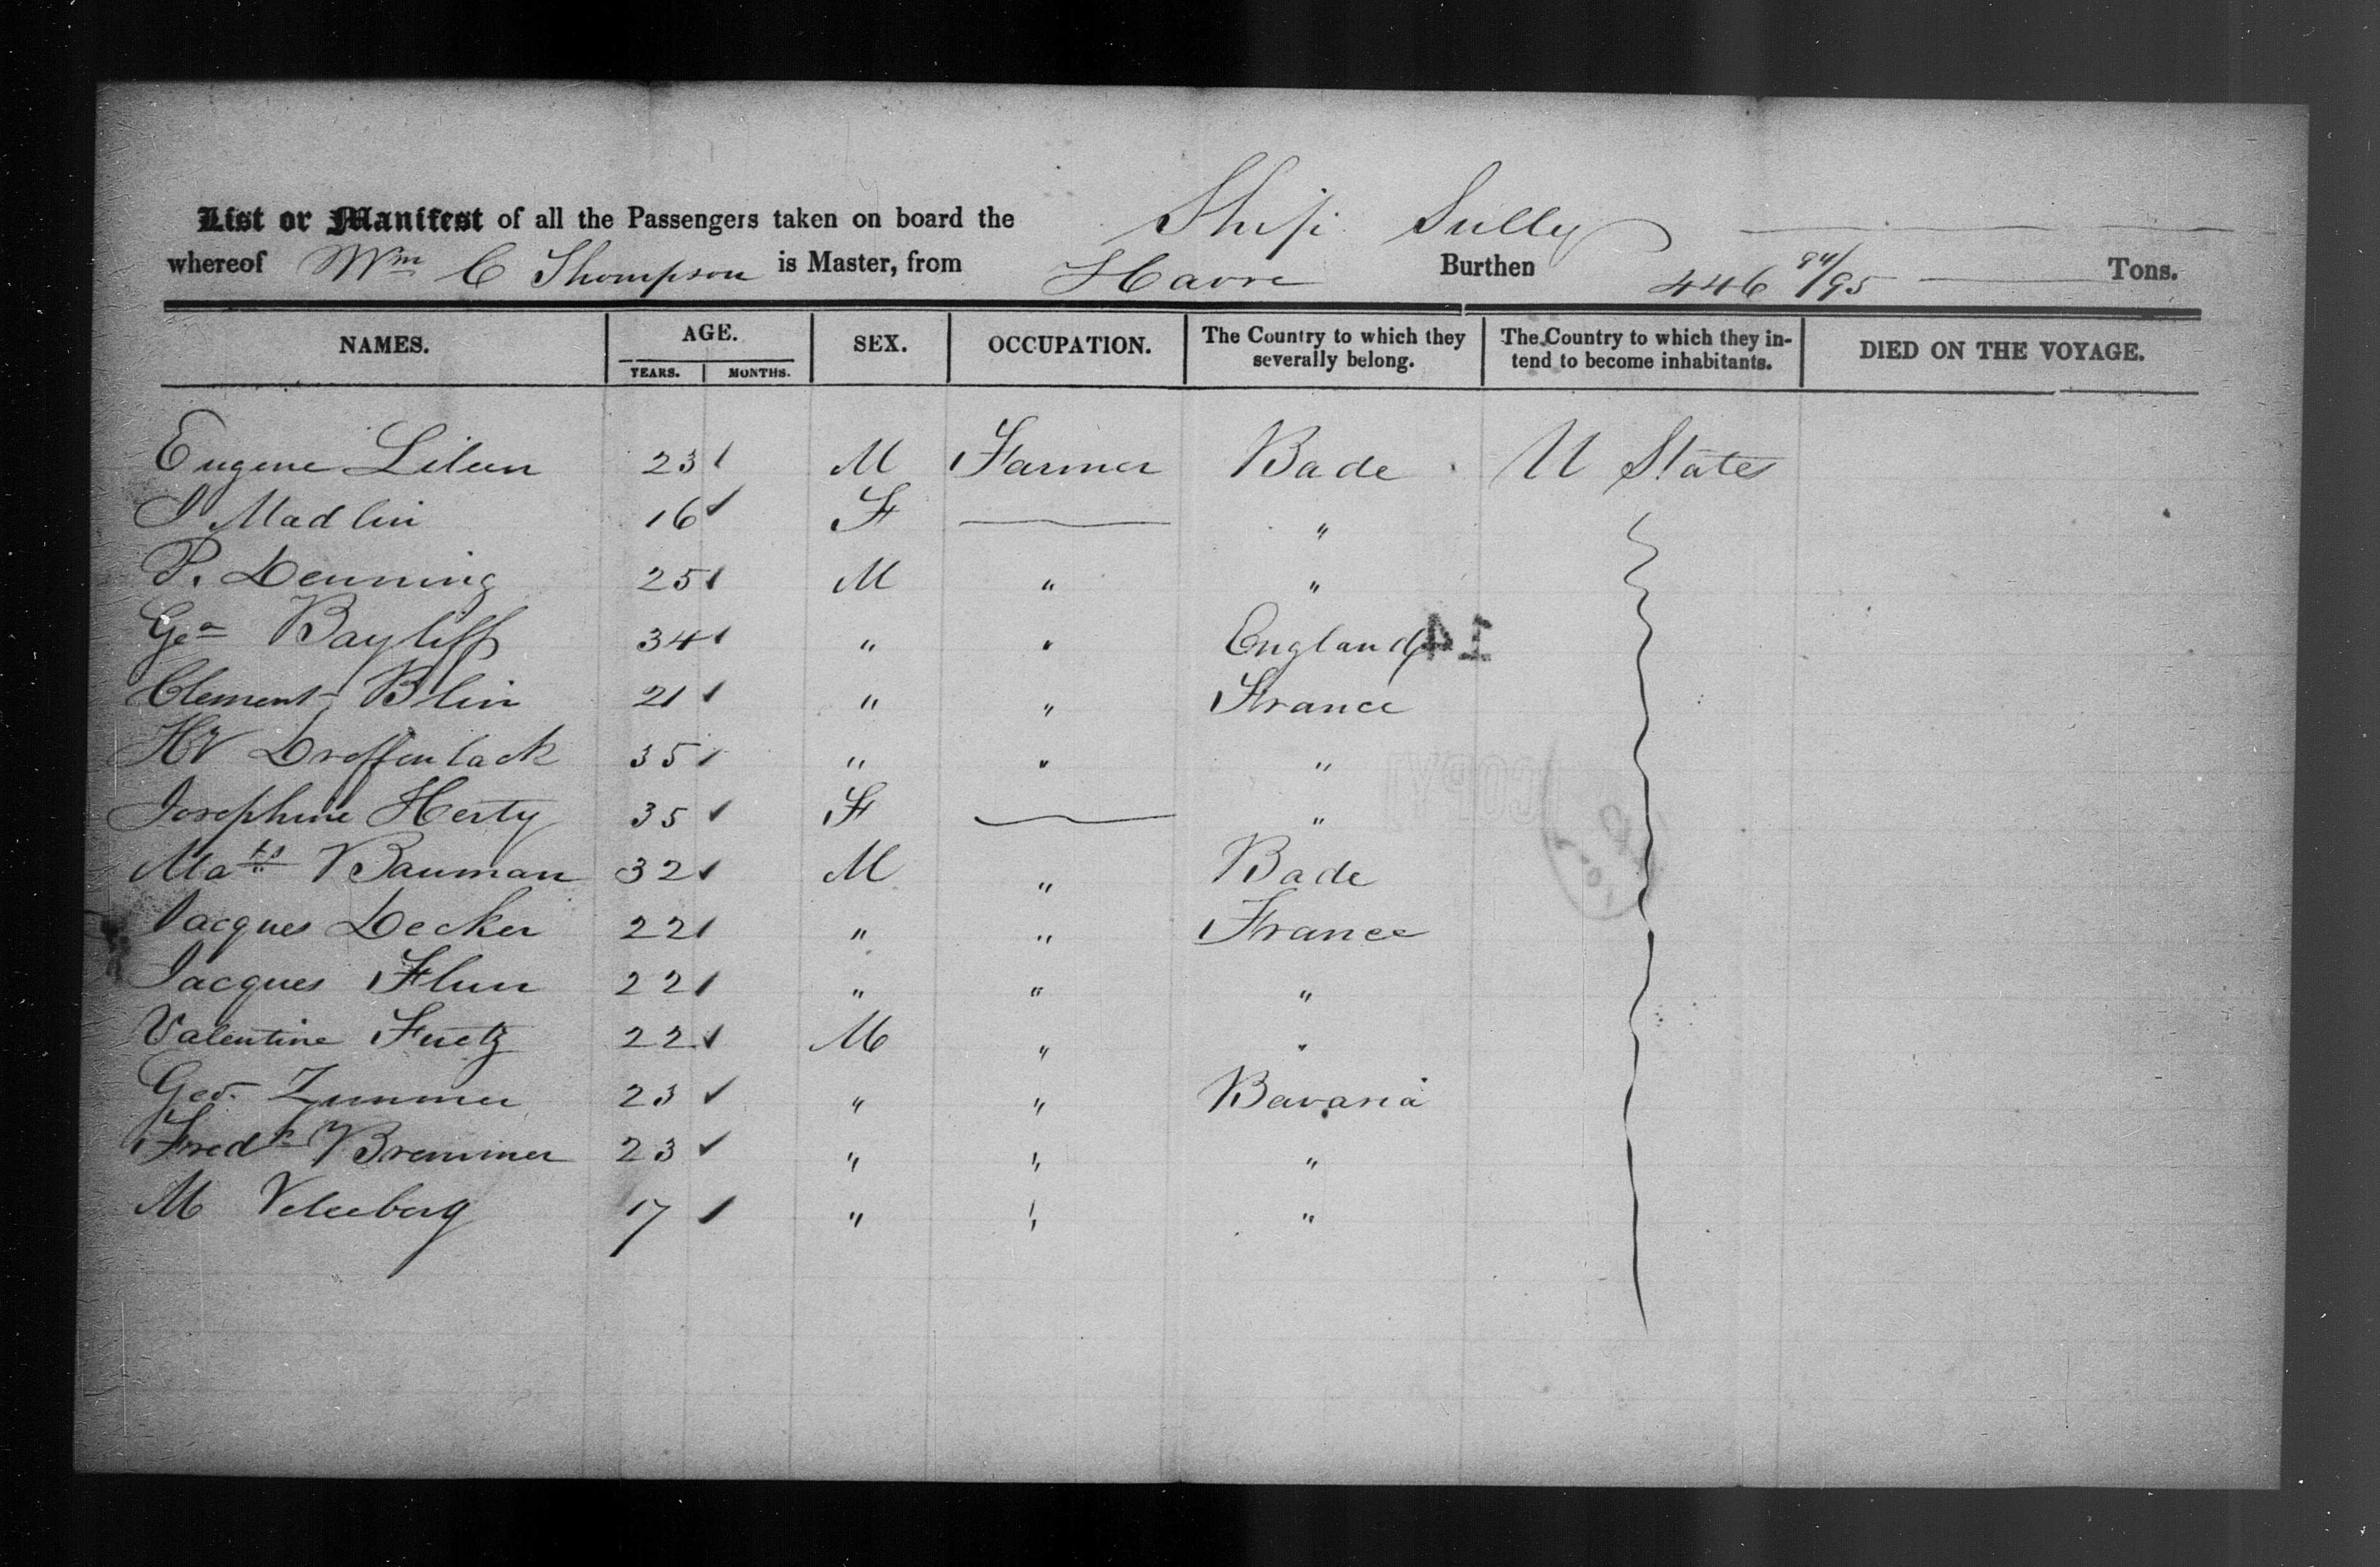 List or Manifest of all the Passengers taken on board the Ship Sully
whereof Wm C Thompson is Master, from Havre Burthen 446 94/95 Tons.
NAMES. AGE. SEX. OCCUPATION. The Country to which they severally belong. The Country to which they intend to become inhabitants. DIED ON THE VOYAGE.
YEARS. MONTHS.
Eugene 23 M Farmer Bade U States
J Madlin 16 F — "
P. Denning 25 M " "
Geo Bayliff 34 " " England
14
Clement Blin 21 " " France
Hy 35 " " "
COPY
Josephine Herty 35 F — "
Mats Bauman 32 M " Bade
Jacques Decker 22 " " France
Jacques 22 " " "
Valentine Fuetz 22 M " "
Geo. Zummer 23 " " Bavaria
Fredk Bremmer 23 " " "
M 17 " " "